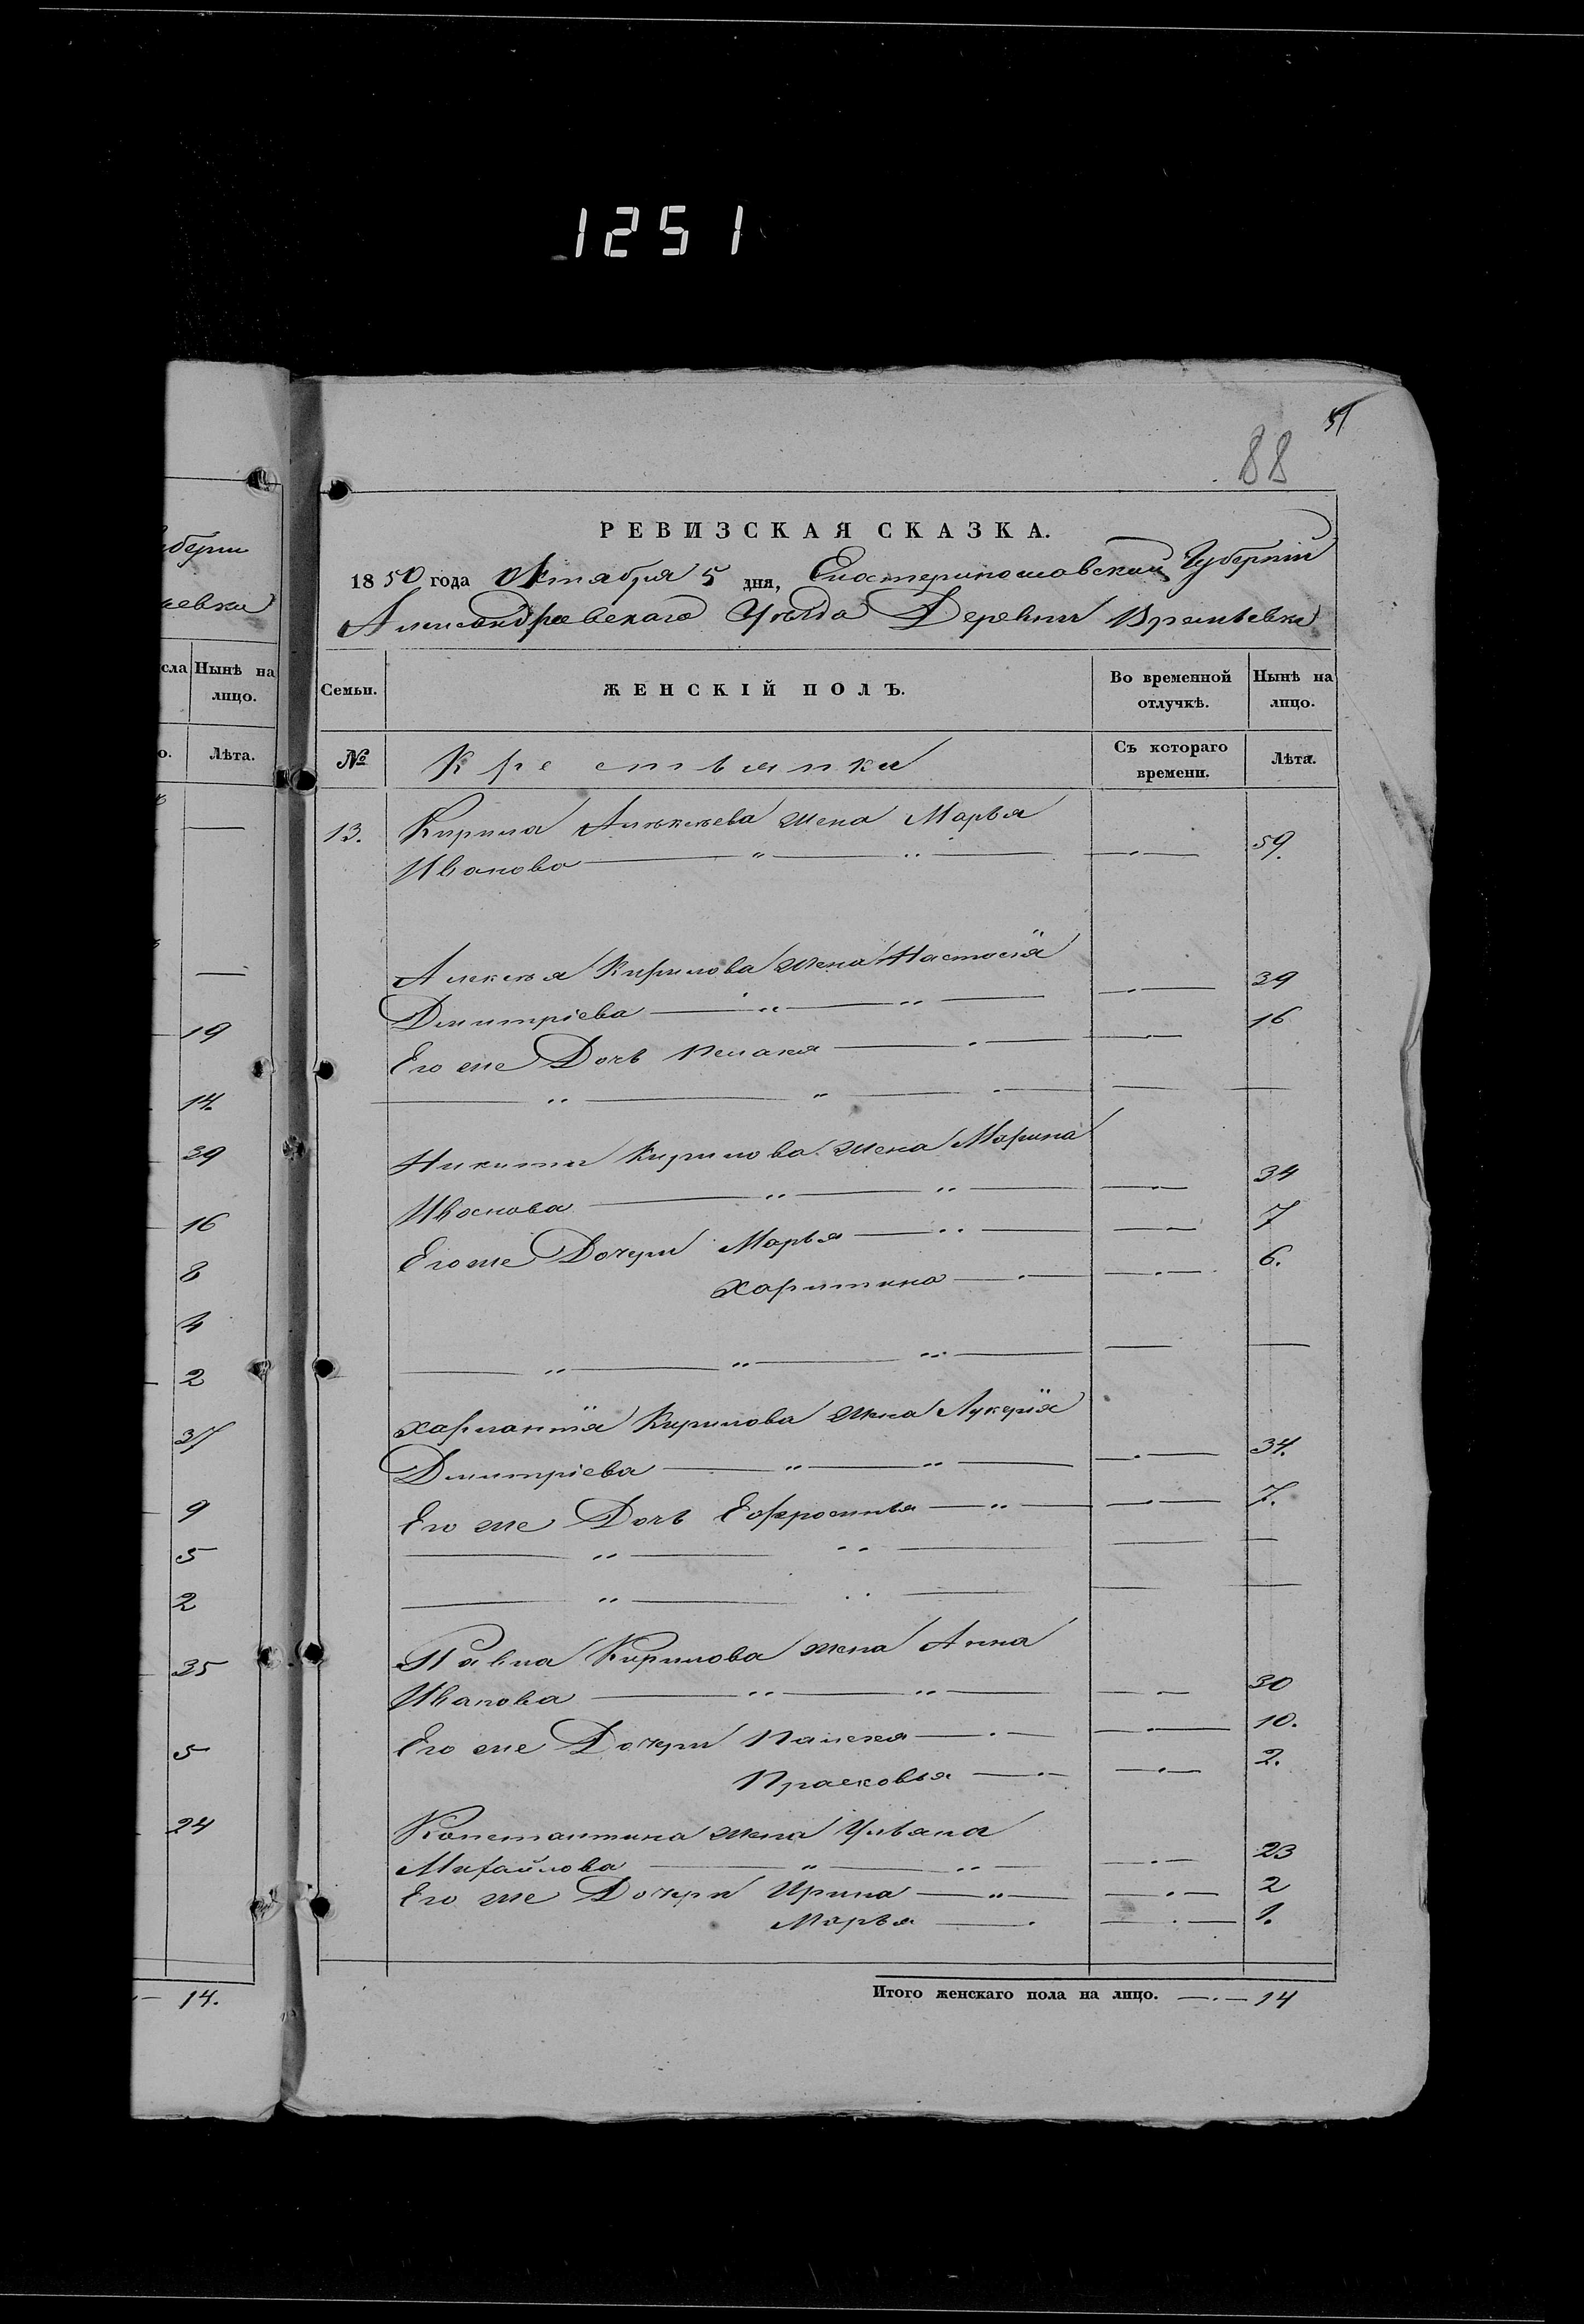 1251
51
88
РЕВИЗСКАЯ СКАЗКА.
1850 года Октября 5 дня, Екатеринославской Губерніи
Александровскаго Уѣзда Деревни Времѣевки
Семьи.
ЖЕНСКІЙ ПОЛЪ.
Во временной отлучкѣ.
Нынѣ на лицо.
№
Крестьянки
Съ котораго времени.
Лѣта.
13. Кирила Алѣксѣева жена Марья
Иванова 59.
Алексѣя Кирилова жена Настасія
Дмитріева 39
Его же Дочь Пелагея 16
Никиты Кирилова жена Марина
Иванова 34
Его же Дочери Марья 7
Харитина 6.
Харлантія Кирилова жена Лукерія
Дмитріева 34.
Его же Дочь Ефросинья 7.
Павла Кирилова жена Анна
Иванова 30
Его же Дочери 10.
Прасковья 2.
Константина жена Ульяна
Михайлова 23
Его же Дочери Ирина 2
Марья 1.
Итого женскаго пола на лицо. 14
берни
евки
сла
Нынѣ на лицо.
о.
Лѣта.
19
14.
39
16
8
4
2
37
9
5
2
35
5
24
14.